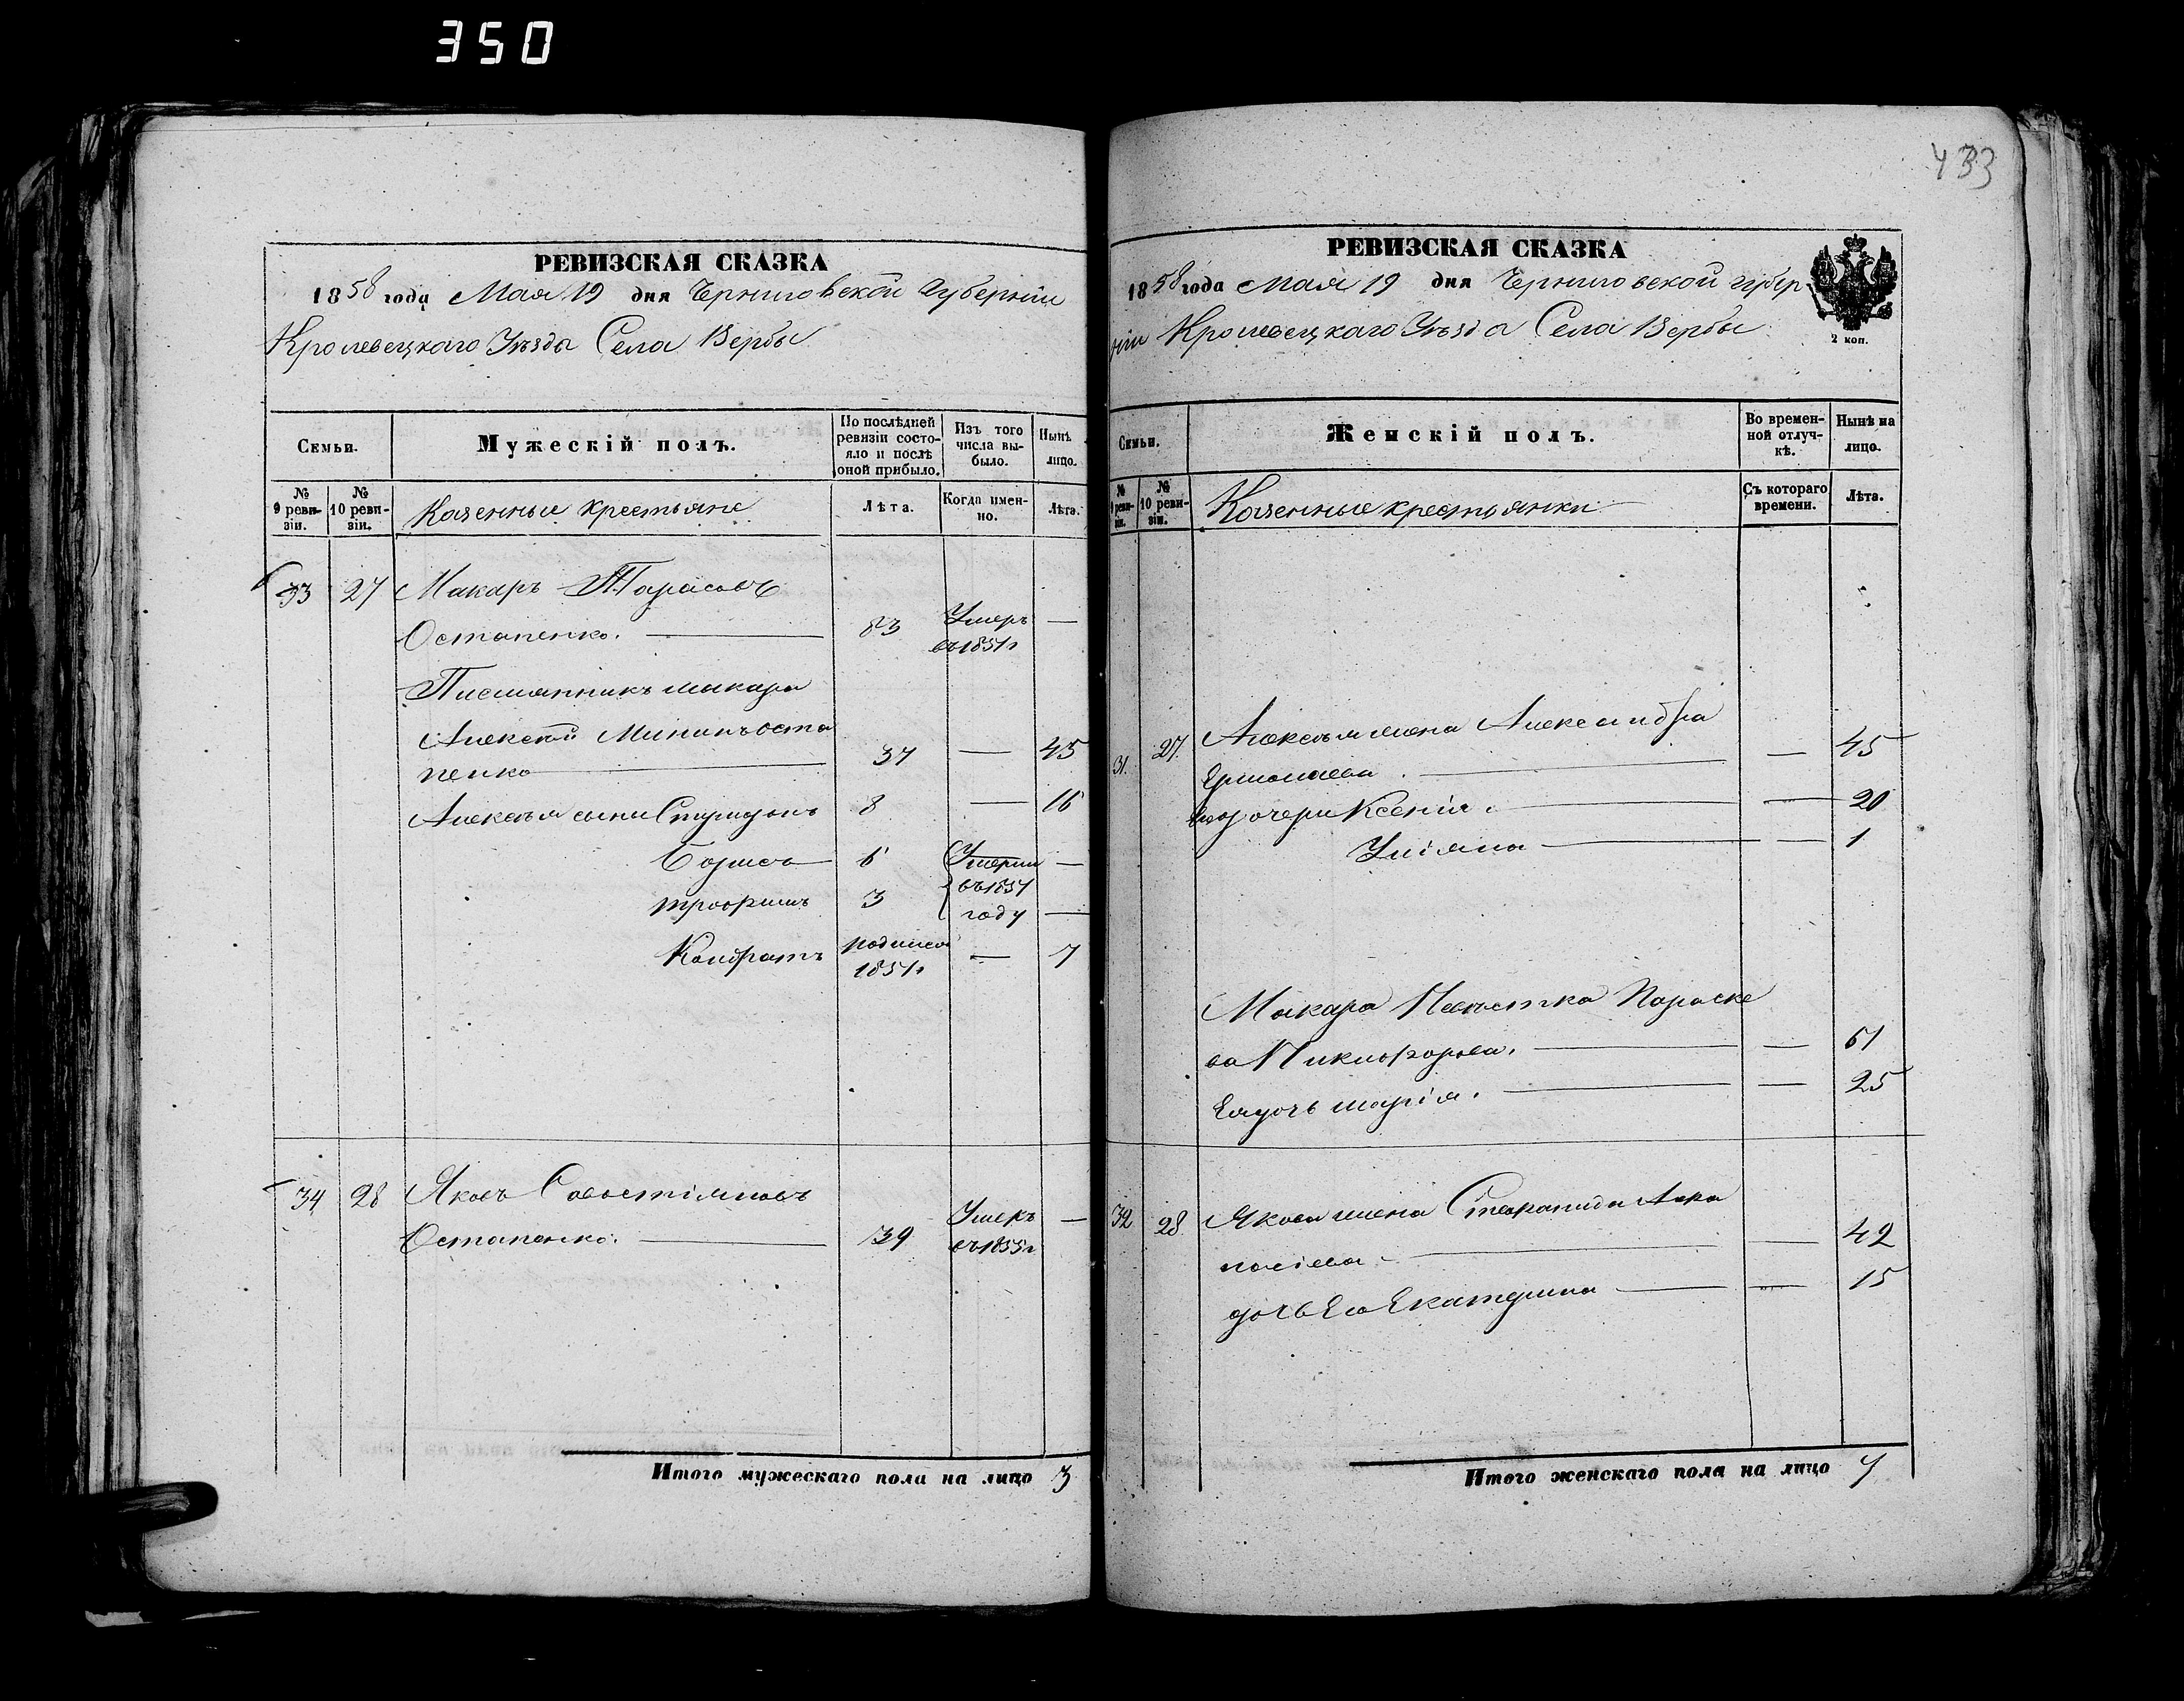 350
433
РЕВИЗСКАЯ СКАЗКА
1858 года Мая 19 дня Черниговской Губерніи
Кролевецкаго Уѣзда Села Вербы
Семьи.
Мужескій полъ.
По послѣдней ревизіи состояло и послѣ оной прибыло.
Изъ того числа выбыло.
Нынѣ лицо.
№ 9 ревизіи.
№ 10 ревизіи.
Казенные крестьяне
Лѣта.
Когда именно.
Лѣта.
33 27 Макаръ Тарасовъ
Остапенко. 83 Умеръ въ 1851г —
Племянникъ макара
Алексѣй Мининъ оста
пенко 37 — 45
Алексѣя сыни Спиридонъ 8 — 16
Борисъ 6 Умерли —
трофимъ 3 въ 1851 году —
Кондратъ родился 1851г — 7
34 28 Яковъ Савостіяновъ
Остапенко. 39 Умеръ въ 1855г —
Итого мужескаго пола на лицо 3
РЕВИЗСКАЯ СКАЗКА
1858 года Мая 19 дня Черниговской губер
ніи Кролевецкаго Уѣзда Села Вербы
2 коп.
Семьи.
Женскій полъ.
Во временной отлучкѣ.
Нынѣ на лицо.
№ 9 ревизіи.
№ 10 ревизіи.
Казенные крестьянки
Съ котораго времени.
Лѣта.
31. 27. Алексѣя жена Александра
Ермолаева. — 45
Его дочери Ксенія. — 20
Уліяна — 1
Макара Невѣстка Параске
ва Никифорова. — 61
Ея дочь марія. — 25
32 28 Якова жена Степанида Афа
насіева — 42
дочь Его Екатерина — 15
Итого женскаго пола на лицо 7